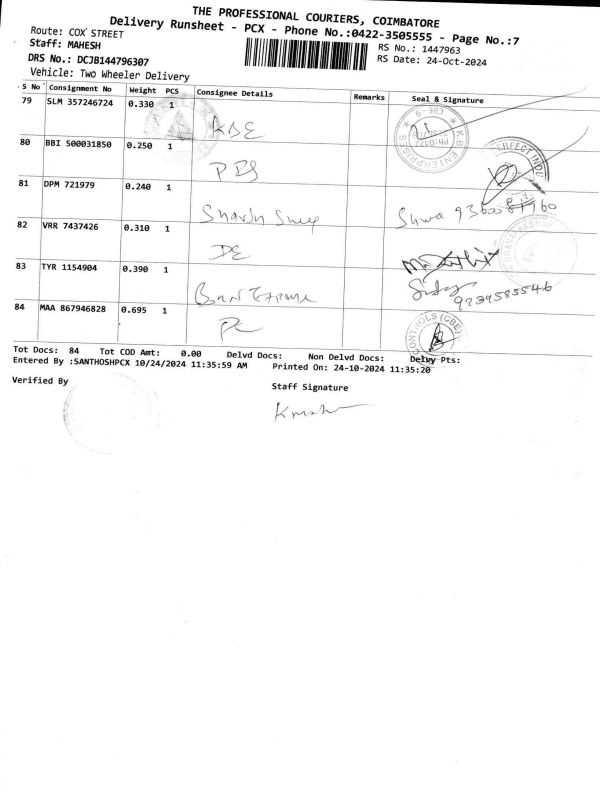 THE PROFESSIONAL COURIERS, COIMBATORE
Delivery Runsheet - PCX - Phone No.:0422-3505555 - Page No.:7
Route: COX STREET
Staff: MAHESH
RS No.: 1447963
DRS No.: DCJB144796307
RS Date: 24-Oct-2024
Vehicle: Two Wheeler Delivery
S No Consignment No Weight PCS Consignee Details Remarks Seal & Signature
79 SLM 357246724 0.330 1
80 BBI 500031850 0.250 1
81 DPM 721979 0.240 1
82 VRR 7437426 0.310 1
DE
83 TYR 1154904 0.390 1
84 MAA 867946828 0.695 1
Tot Docs: 84 Tot COD Amt: 0.00 Delvd Docs: Non Delvd Docs: Delvy Pts:
Entered By :SANTHOSHPCX 10/24/2024 11:35:59 AM Printed On: 24-10-2024 11:35:20
Verified By
Staff Signature